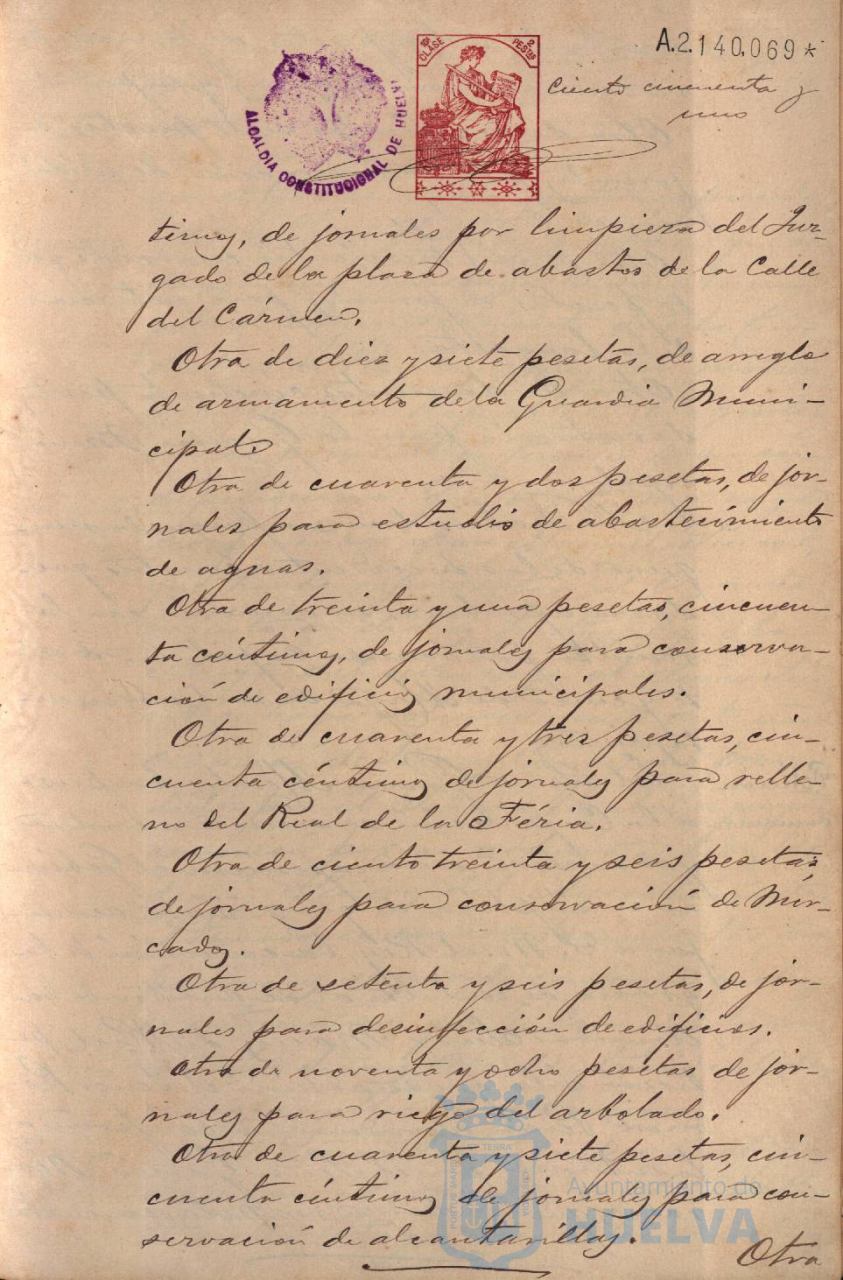 A.2.140.069*
10ª CLASE
2 PESETAS
ALCALDIA CONSTITUCIONAL DE HUELVA
ciento cincuenta y
uno
timos, de jornales por limpieza del Juz-
gado de la plaza de abastos de la Calle
del Cármen.
Otra de diez y siete pesetas, de arreglo
de armamento de la Guardia Muni-
cipal.
Otra de cuarenta y dos pesetas, de jor-
nales para estudio de abastecimiento
de aguas.
Otra de treinta y una pesetas, cincuen-
ta céntimos, de jornales para conserva-
ción de edificios municipales.
Otra de cuarenta y tres pesetas, cin-
cuenta céntimos de jornales para relle-
no del Real de la Féria.
Otra de ciento treinta y seis pesetas,
de jornales para conservación de Mer-
cados.
Otra de setenta y seis pesetas, de jor-
nales para desinfección de edificios.
Otra de noventa y ocho pesetas de jor-
nales para riego del arbolado.
Otra de cuarenta y siete pesetas, cin-
cuenta céntimos de jornales para con-
servación de alcantarillas.
Otra
Ayuntamiento de
HUELVA